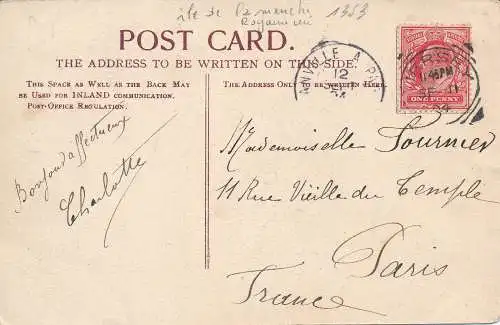 île de la Manche 1353
Royaume uni
POST CARD.
THE ADDRESS TO BE WRITTEN ON THIS SIDE.
THIS SPACE AS WELL AS THE BACK MAY
BE USED FOR INLAND COMMUNICATION.
POST-OFFICE REGULATION.
THE ADDRESS ONLY TO BE WRITTEN HERE.
12
JERSEY
ONE PENNY
Bonjour affectueux
Charlotte
Mademoiselle Fournier
11 Rue Vieille du Temple
Paris
France